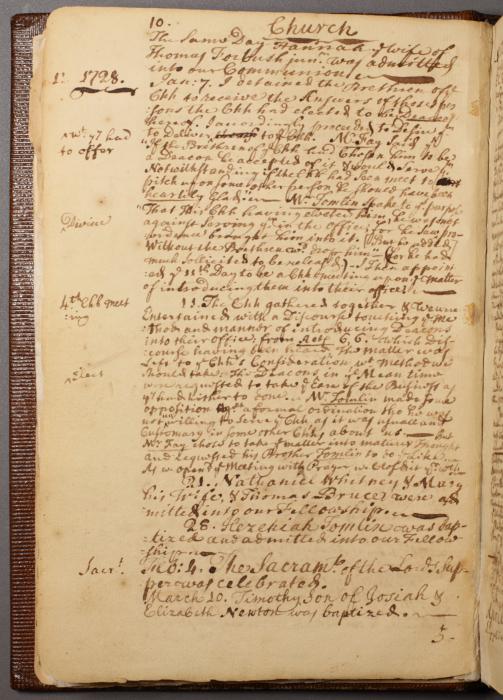 10.
Church
The Same Day Hannah ye Wife of
Thomas Forbush junr. was admitted
into our Communion.
1728.
Jan. 7. I detained the Brethren of ye
Chh to receive the Answers of those per
sons the Chh had elected to be Deacons
thereof. I accordingly proceeded to Desire ym
wt. yy had
to offer
to deliver to ye Chh. Mr. Fay said yt
if the Brethren of ye Chh had Chosen him to be
a Deacon he accepted of it & would serve ym
Notwithstanding if the Chh had seen meet to
pitch upon some other person he should have been
heartily glad in
Mr. Tomlin spake to ys purpose
That this Chh having elected him, he was not
against serving ym in the office, for he saw pro-
Divine
vidence brought him into it.
But he added
without the Brethren wd. now
for he had
much sollicited to be released
I then appoint
ed ye 11th Day to be a Chh meeting upon ye matter
of introducing them into their office.
4th Chh meet
:ing
11. The Chh gathered together & we were
Entertained with a Discourse touching ye me
:thod and manner of introducing Deacons
into their office, from Acts 6, 6. Which Dis-
course having been heard The matter was
left to ye Chh's Consideration wt. method we
should take. The Deacons in ye Mean time
elect
were requested to take ye Care of the Business as
yy had hitherto done.
Mr. Tomlin made some
opposition to a formal ordination tho he was
not willing to serve ye Chh as it was usuall and
Customary in some other Chhs about us.
but
Mr. Fay chose to take ye matter into mature Thought
and requested his Brother Tomlin to do ye like.
As we opend ye Meeting with Prayer we Closd it
21. Nathaniel Whitney & Mary
his Wife, & Thomas Bruce were ad
:mitted into our Fellowship.
28. Hezekiah Tomlin was bap-
:tized and admitted into our Fellow
:ship
Sacrt.
Feb. 4. The Sacramt. of the Lords Sup-
per was celebrated.
March 10. Timothy Son of Josiah &
Elizabeth Newton was baptized.